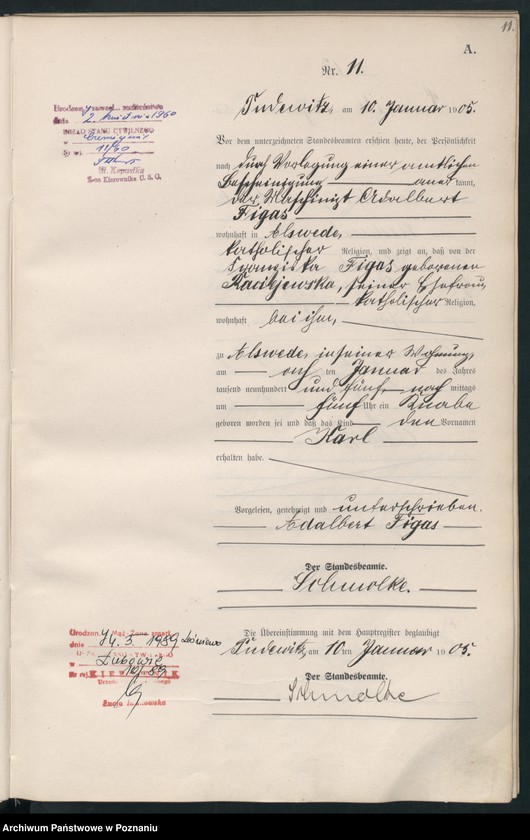 11.
A.
Nr. 11.
Pudewitz, am 10. Januar 1905.
Vor dem unterzeichneten Standesbeamten erschien heute, der Persönlichkeit
nach durch Vorlegung einer amtlichen
Bescheinigung anerkannt,
der Maschinist Adalbert
Figas
wohnhaft in Alswede,
katholischer Religion, und zeigt an, daß von der
Franziska Figas geborenen
seiner Ehefrau,
katholischer Religion,
wohnhaft bei ihm,
zu Alswede, in seiner Wohnung,
am ten Januar des Jahres
tausend neunhundert und fünf nachmittags
um fünf Uhr ein Knabe
geboren worden sei und daß das Kind den Vornamen
Karl
erhalten habe.
Vorgelesen, genehmigt und unterschrieben.
Adalbert Figas
Der Standesbeamte.
Schmolke.
Die Übereinstimmung mit dem Hauptregister beglaubigt
Pudewitz, am 10ten Januar 1905.
Der Standesbeamte.
Schmolke
Urodzon. zawarł. małżeństwo
dnia 2. 1960
URZĄD STANU CYWILNEGO
w
Nr rej. 11/60
Z-ca Kierownika U. S. C.
Urodzon. Mąż-Żona zmarł
dnia 14. 3. 1989
w Łubowie
Nr rej. 10/89
KIEROWNIK
Archiwum Państwowe w Poznaniu